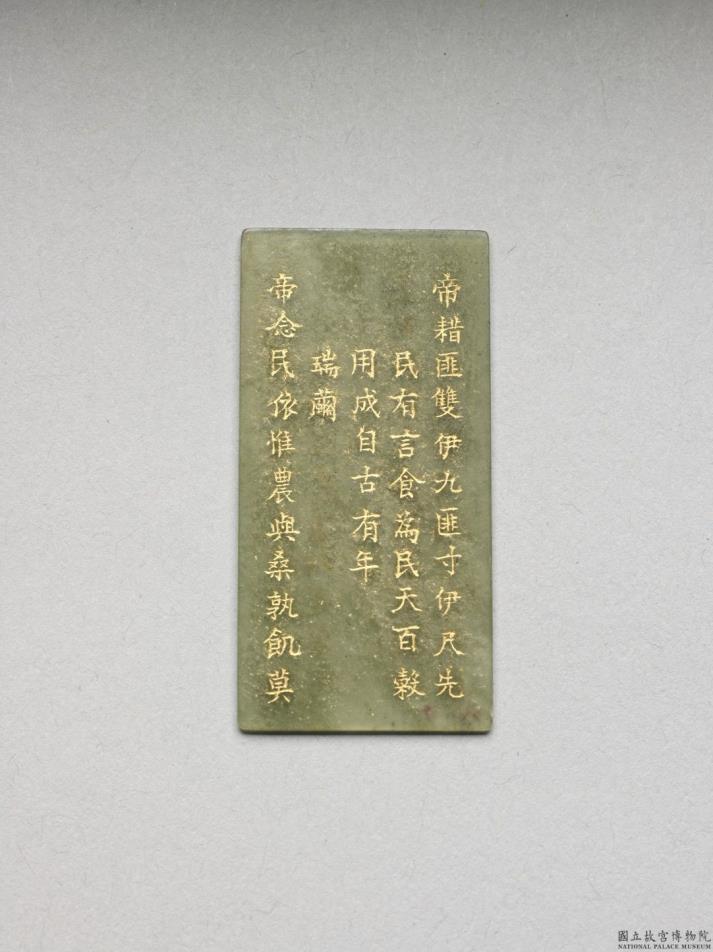 帝耤匪雙伊九匪寸伊尺先
民有言食為民天百穀
用成自古有年
瑞繭
帝念民依惟農與桑孰飢莫
國立故宮博物院
NATIONAL PALACE MUSEUM